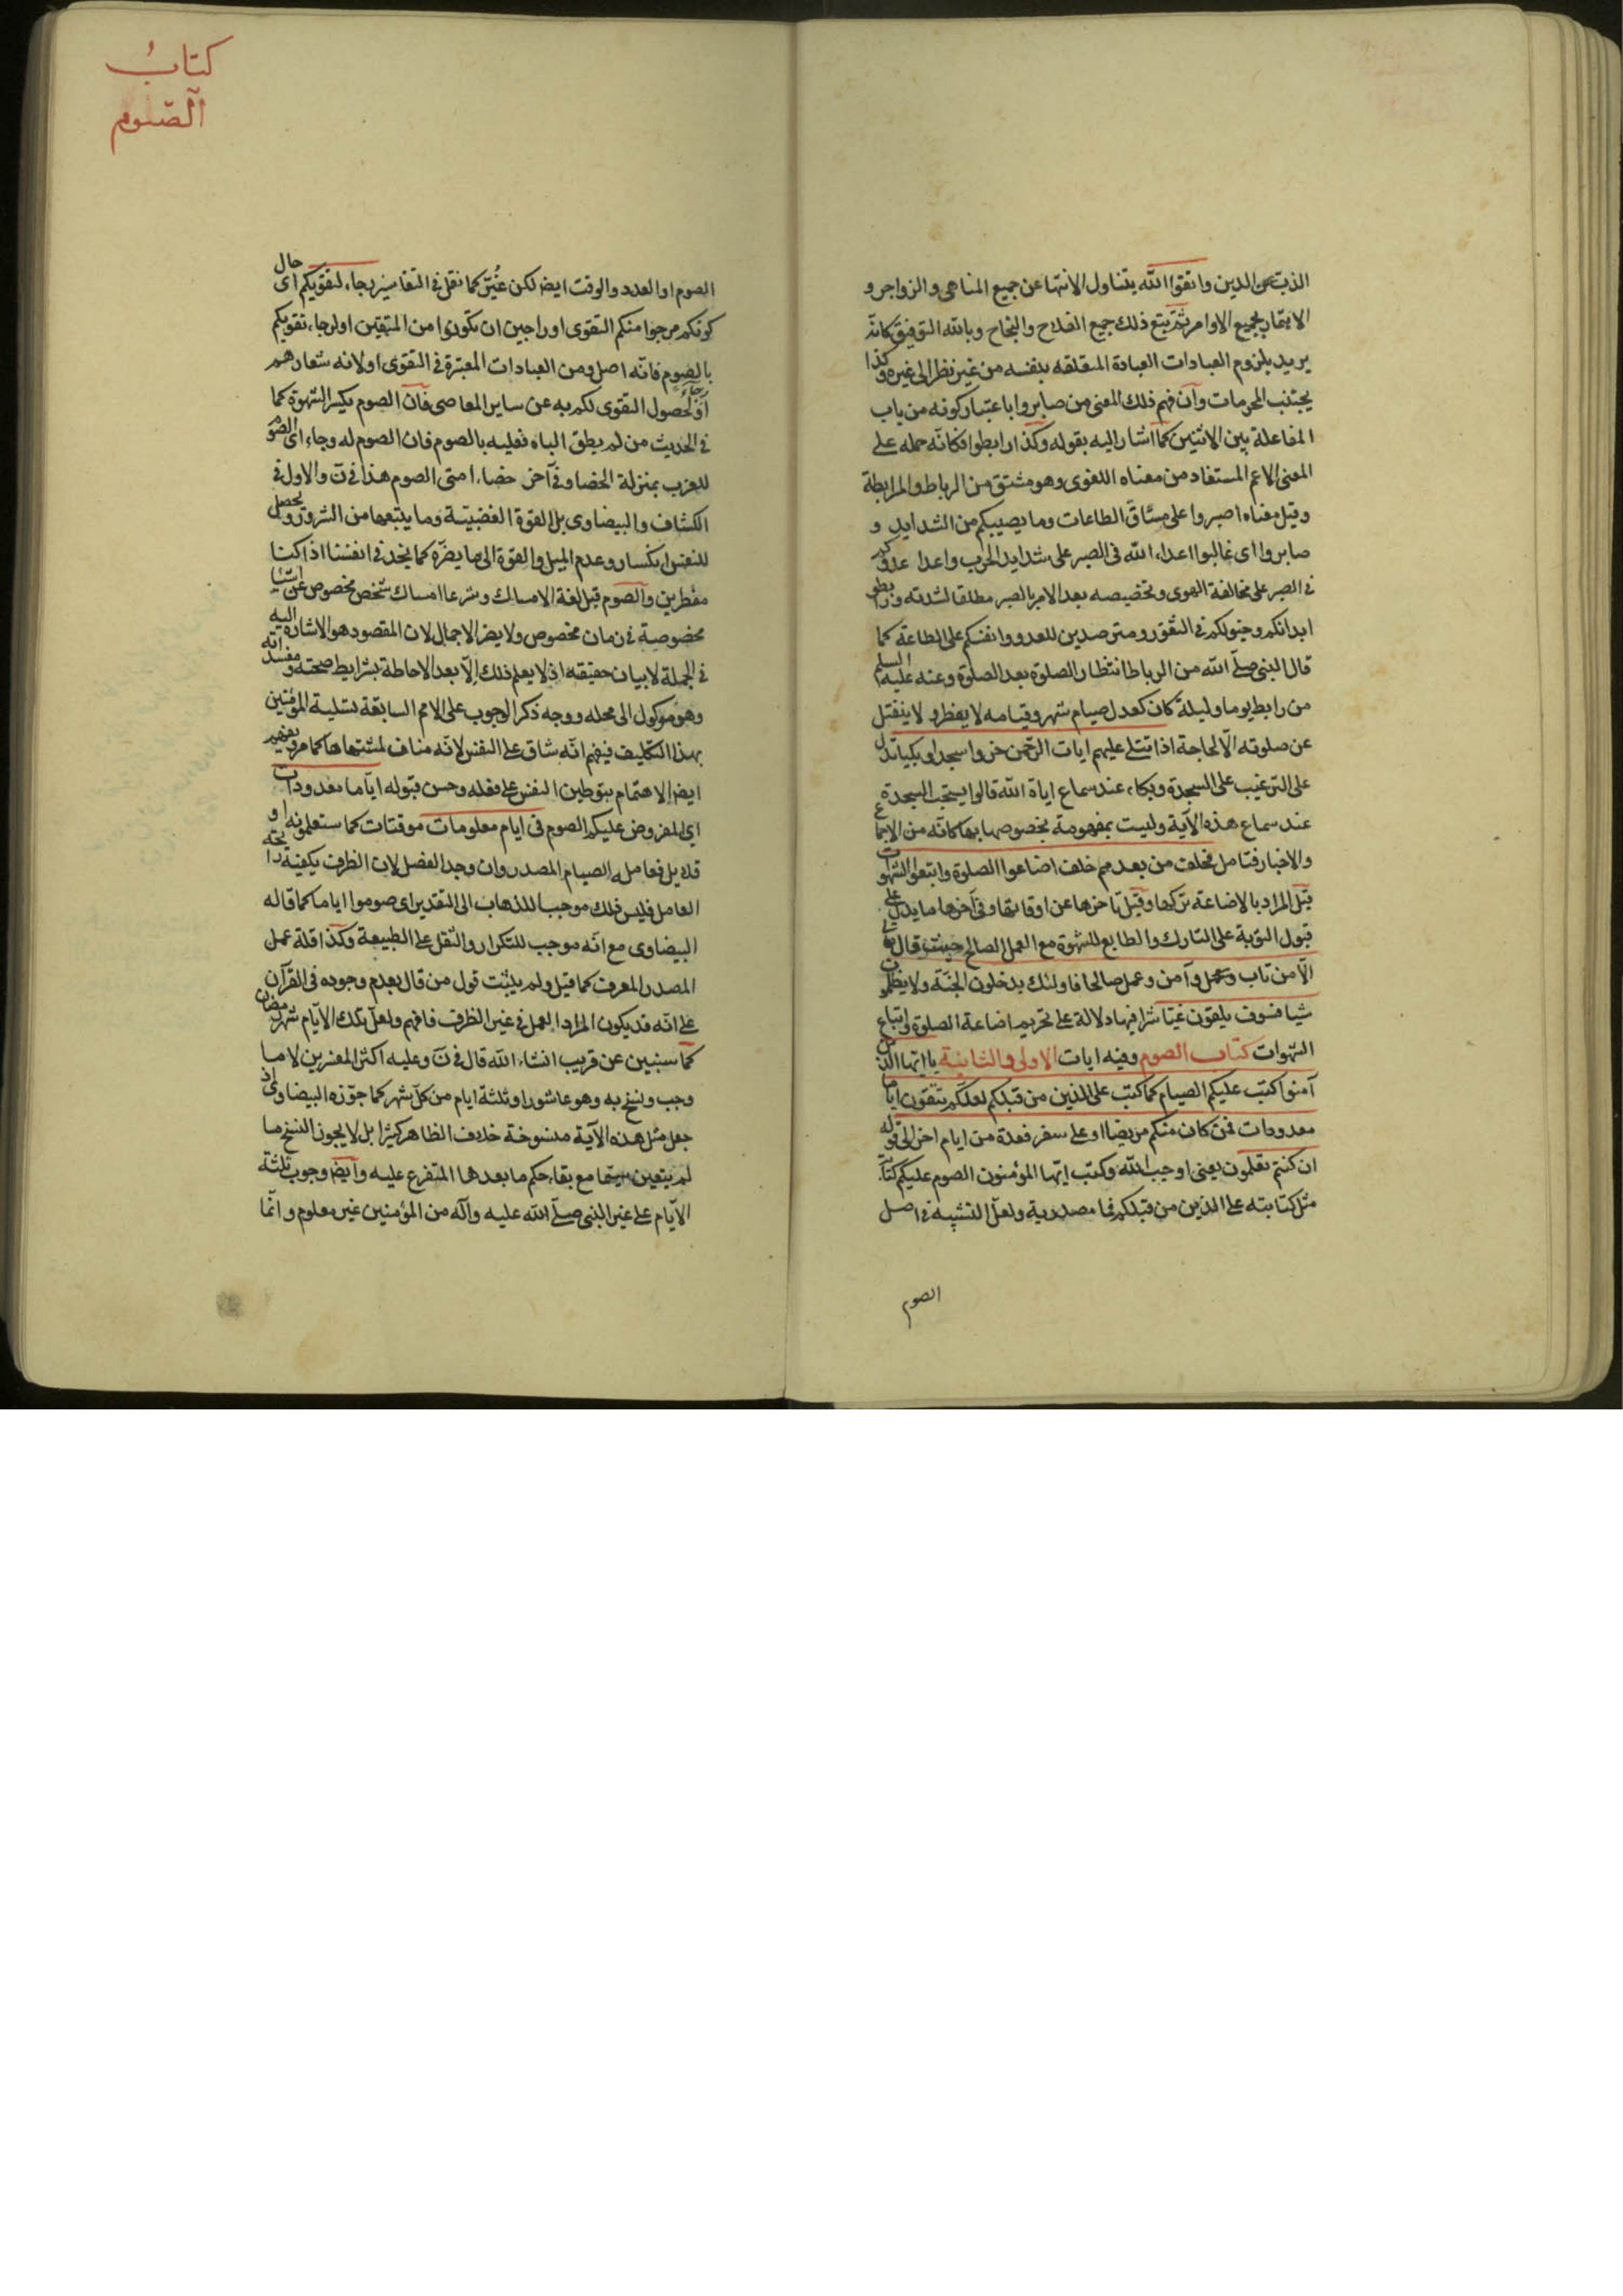 الذب عن الدين واتقوا الله يتناول الانتها عن جميع المناهى والزواجر و
الايتمار بجميع الاوامر ثم يتبع ذلك جميع الفلاح والنجاح وبالله التوفيق كانه
يريد بلزوم العبادات العبادة المتعلقه بنفسه من غير نظر الى غيره وكذا
يجتنب المحرمات وان فهم ذلك المعنى من صابروا باعتبار كونه من باب
المفاعلة بين الاثنين كما اشار اليه بقوله وكذا رابطوا فكانه حمله على
المعنى الاعم المستفاد من معناه اللغوى وهو مشتق من الرباط والمرابطة
وقيل معناه اصبروا على مشاق الطاعات وما يصيبكم من الشدايد و
صابروا اى غالبوا اعداء الله فى الصبر على شدايد الحرب واعدا عدوكم
فى الصبر على مخالفة الهوى وتخصيصه بعد الامر بالصبر مطلقا لشدته ورابطو
ابدانكم وخيولكم فى الثغور ومترصدين للعدو وانفسكم على الطاعة كما
قال النبى صلى الله من الرباط انتظار الصلوة بعد الصلوة وعنه عليه السلم
من رابط يوما وليلة كان كعدل صيام شهر وقيامه لا يفطر ولا ينفتل
عن صلوته الا لحاجة اذا تتلى عليهم ايات الرحمن خروا سجدا وبكيا تدل
على الترغيب على السجدة وبكاء عند سماع اياة الله قالوا يستحب السجدة
عند سماع هذه الآية وليست بمفهومة بخصوصها بها كانه من الاجماع
والاخبار فتامل فخلف من بعدهم خلف اضاعوا الصلوة واتبعوا الشهوات
قيل المراد بالاضاعة تركها وقيل تاخرها عن اوقاتها وفى آخرها ما يدل على
قبول التوبة على التارك والطابع للشهوة مع العمل الصالح حيث قال تعالى
الا من تاب وعمل وآمن وعمل صالحا فاولئك يدخلون الجنة ولا يظلمون
شيا فسوف يلقون غيا شرا فيها دلالة على تحريم اضاعة الصلوة واتباع
الشهوات كتاب الصوم وفيه ايات الاولى والثانية يا ايها الذين
آمنوا كتب عليكم الصيام كما كتب على الذين من قبلكم لعلكم تتقون اياما
معدودات فمن كان منكم مريضا او على سفر فعدة من ايام اخر الى قوله
ان كنتم تعلمون يعنى اوجب الله وكتب ايها المؤمنون الصوم عليكم كتابة
مثل كتابته على الذين من قبلكم فما مصدرية ولعل التشبيه فى اصل
الصوم
كتابُ
الصوم
الصوم او العدد والوقت ايضا لكن غُيّر كما نقل فى التفاسير رجاء لتقويكم اى حال
كونكم مرجوا منكم التقوى او راجين ان تكونوا من المتقين او لرجاء تقويكم
بالصوم فانه اصل ومن العبادات المعتبرة فى التقوى او لانه شعارهم
او رجاء لحصول التقوى لكم به عن ساير المعاصى فان الصوم يكسر الشهوة كما
فى الحديث من لم يطق الباه فعليه بالصوم فان الصوم له وجاء اى الصوم
للعزب بمنزلة الخصا وفى آخر خصاء امتى الصوم هذا فى ن والاول فى
الكشاف والبيضاوى بل القوة الغضبية وما يتبعها من الشرور ويحصل
للنفس انكسار وعدم الميل والقوة الى ما يضره كما نجد فى انفسنا اذا كنا
مفطرين والصوم قيل لغة الامساك وشرعا امساك شخص مخصوص عن اشياء
مخصوصة فى زمان مخصوص ولا يضر الاجمال لان المقصود هو الاشارة اليه
فى الجملة لا بيان حقيقته اذ لا يعلم ذلك الا بعد الاحاطة بشرايط صحته ومفسداته
وهو موكول الى محله ووجه ذكر الوجوب على الامم السابقة تسلية المؤمنين
بهذا التكليف فيفهم انه شاق على النفس لانه مناف لمشتهاها كما مر ويفهم
ايضا الاهتمام بتوطين النفس على فعله وحسن قبوله اياما معدودات
اى المفروض عليكم الصوم فى ايام معلومات موقتات كما ستعلمونه او
قلايل فعامله الصيام المصدر وان وجد الفصل لان الظرف يكفيه رائحة
العامل فليس ذلك موجبا للذهاب الى التقدير اى صوموا اياما كما قاله
البيضاوى مع انه موجب للتكرار والثقل على الطبيعة وكذا قلة عمل
المصدر المعرف كما قيل ولم يثبت قول من قال بعدم وجوده فى القرآن
على انه قد يكون المراد العمل فى غير الظرف فافهم ولعل تلك الايام شهر رمضان
كما سنبين عن قريب انشاء الله قال فى ن وعليه اكثر المفسرين لا ما
وجب ونسخ به وهو عاشورا او ثلثة ايام من كل شهر كما جوزه البيضاوى اذ
جعل مثل هذه الآية منسوخة خلاف الظاهر كثيرا بل لا يجوز النسخ ما
لم يتعين سيما مع بقاء حكم ما بعدها المتفرع عليه وايضا وجوب ثلثة
الايام على غير النبى صلى الله عليه وآله من المؤمنين غير معلوم وانما